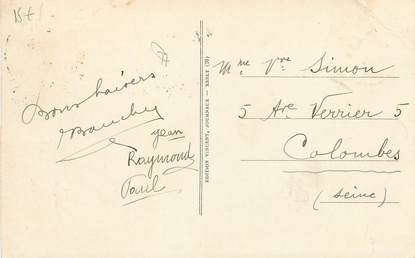 15 f
Bons baisers
Jean
Raymond
Paul
EDITION VINCENT, JOURNAUX
Mme Vve Simon
5 Ave Verrier 5
Colombes
(Seine)